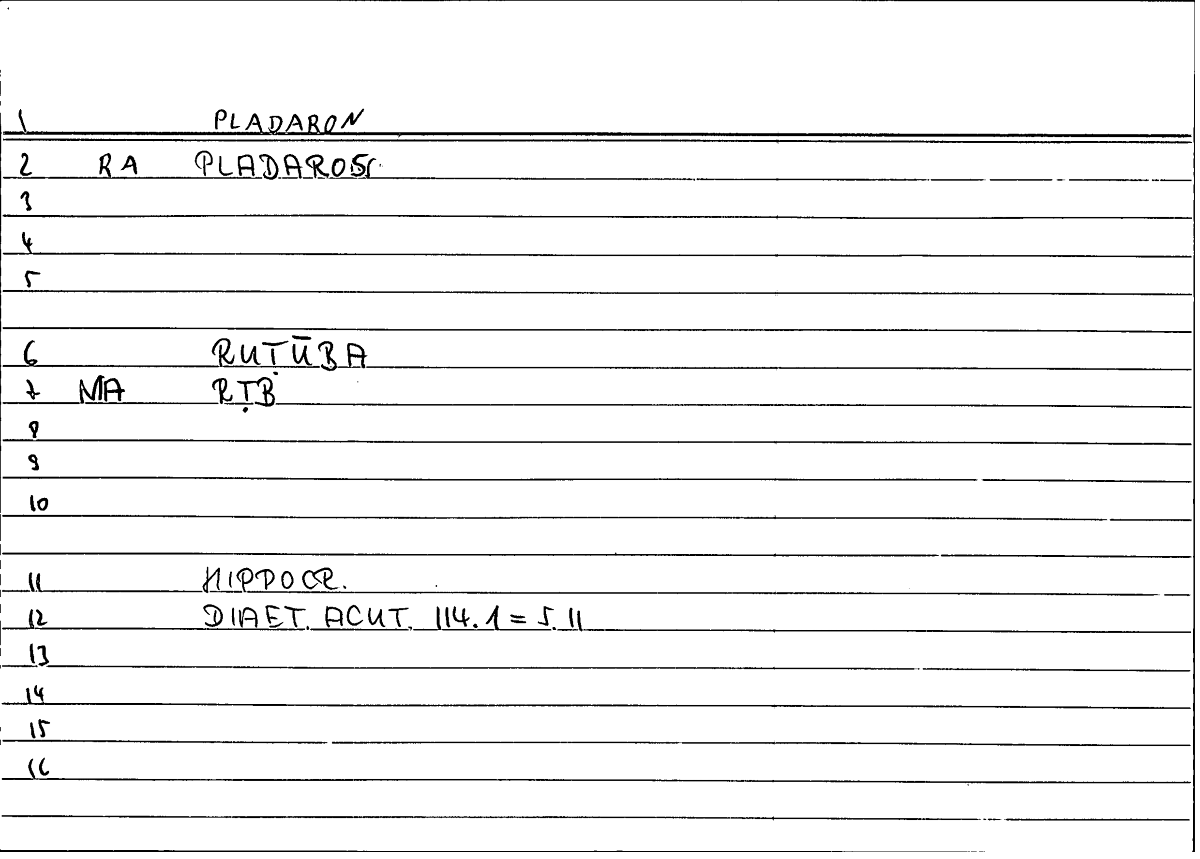 1 PLADARON
2 RA PLADAROS
3
4
5
6 RUṬŪBA
7 MA RṬB
8
9
10
11 HIPPOCR.
12 DIAET. ACUT. 114.1 = 5.11
13
14
15
16